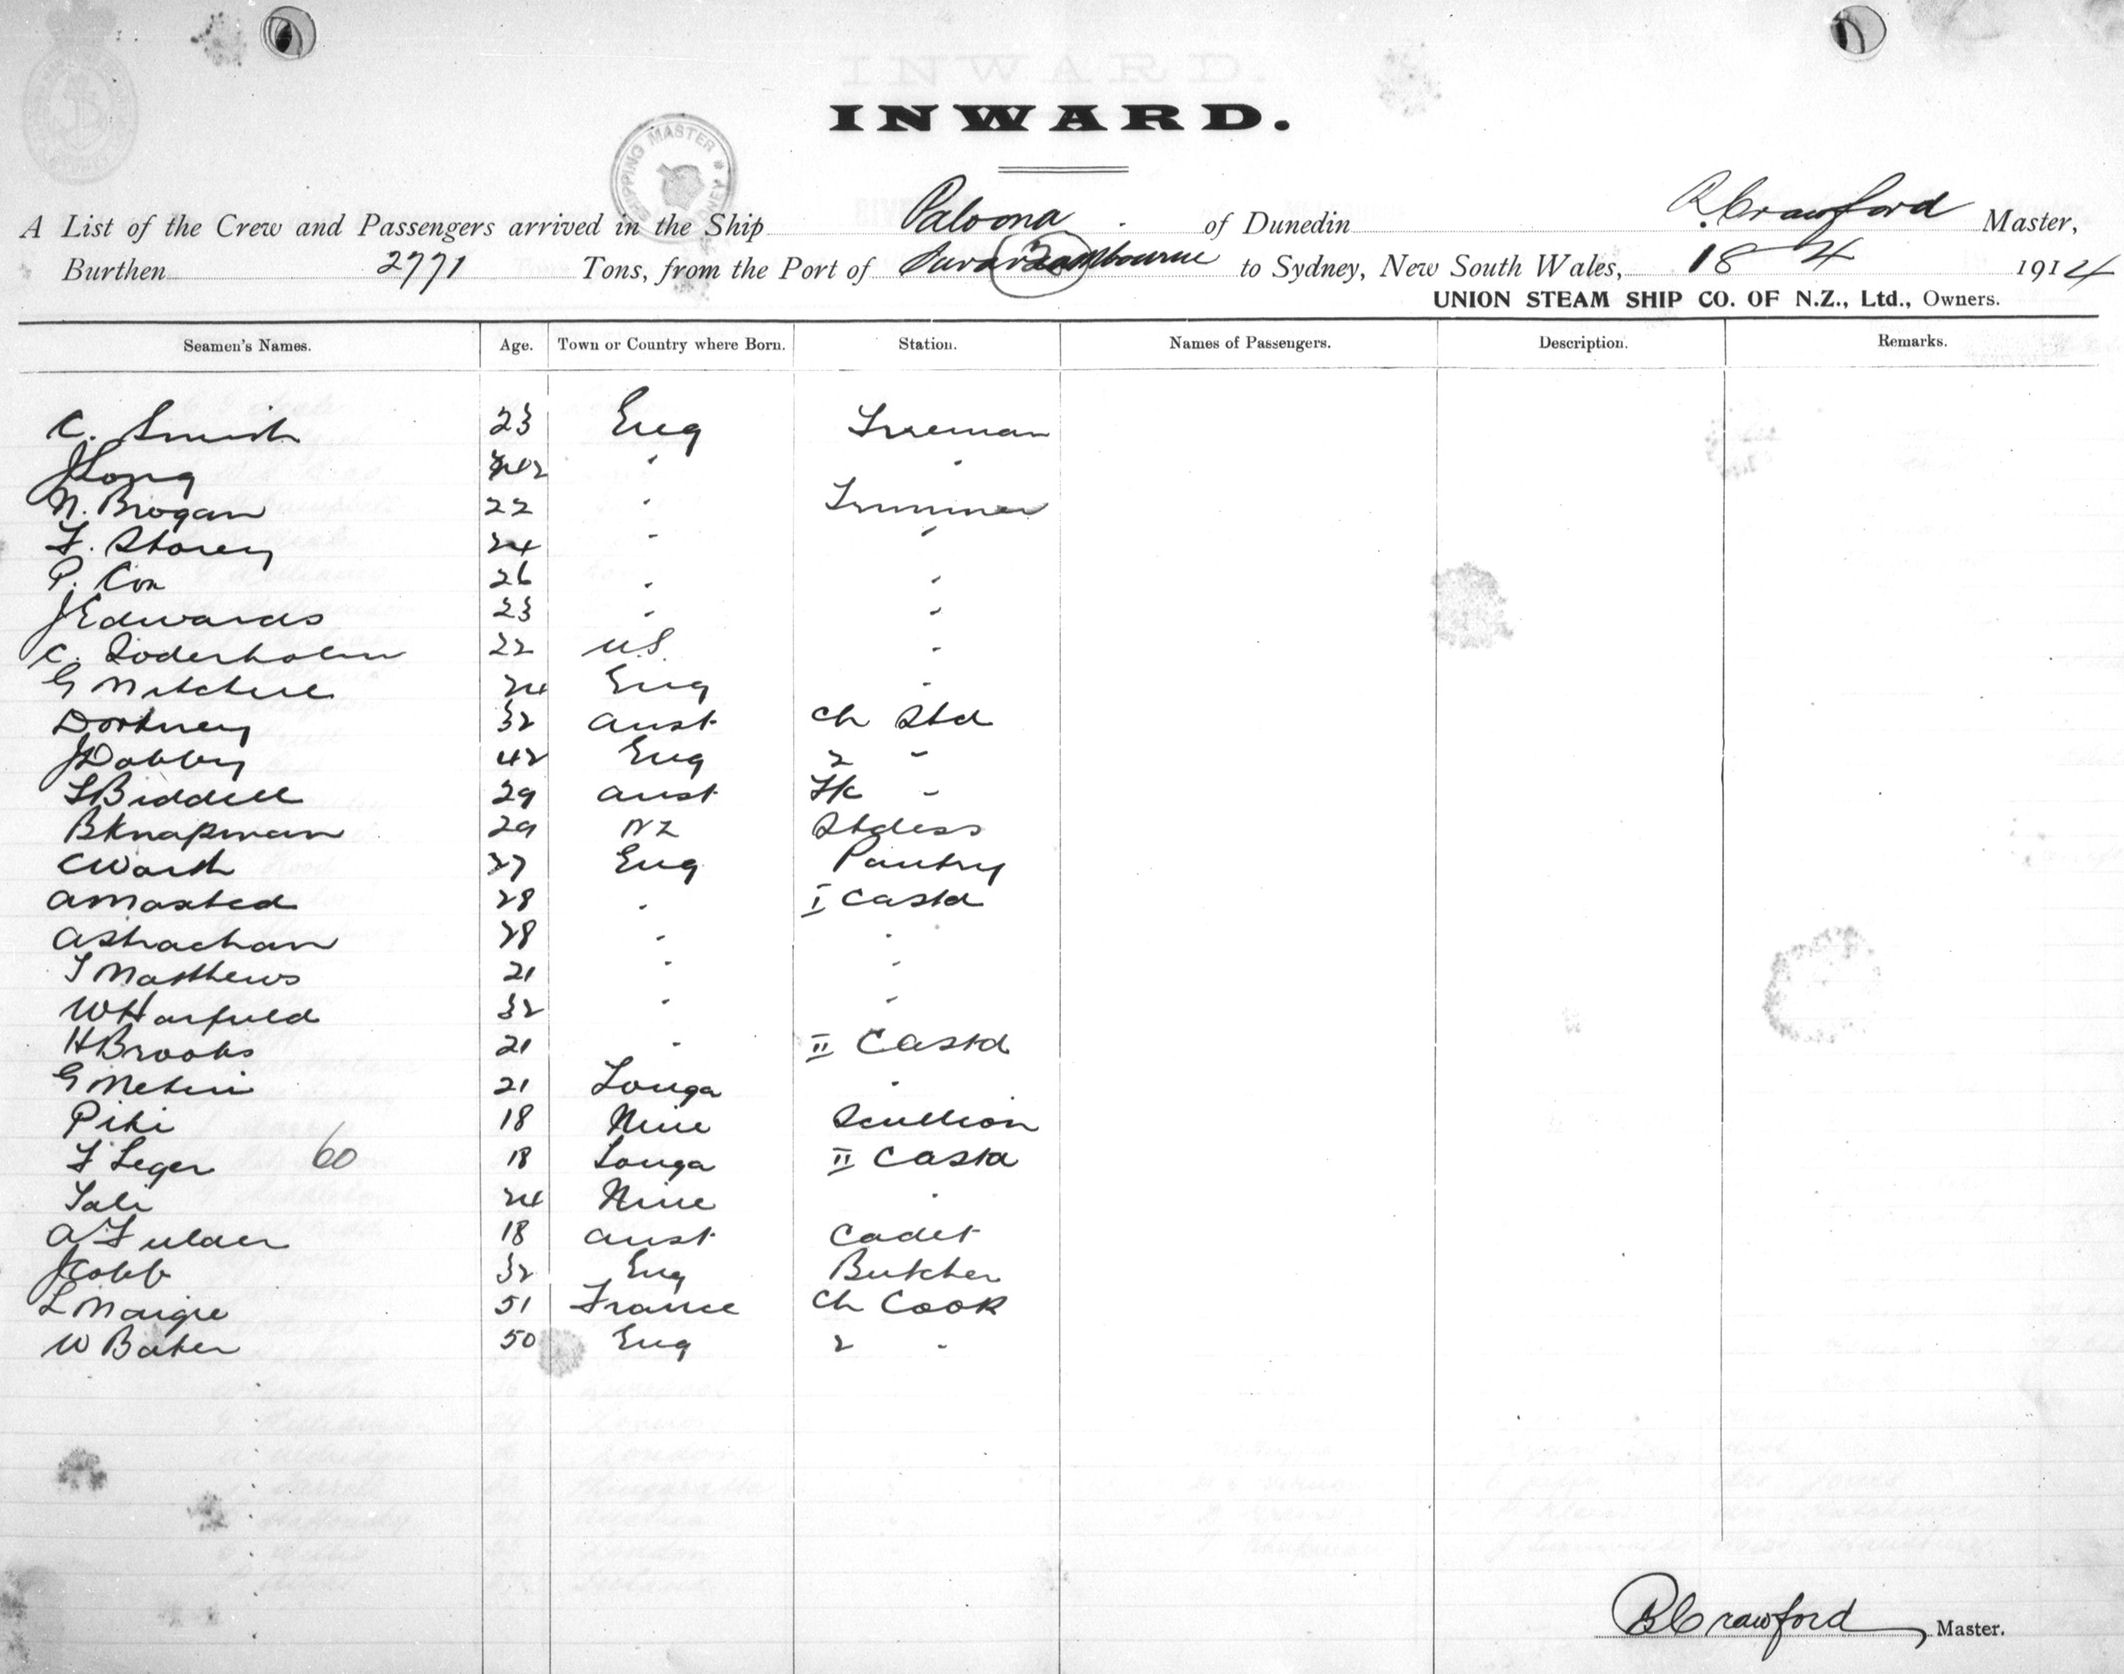 INWARD.
SHIPPING MASTER
A List of the Crew and Passengers arrived in the Ship Paloona of Dunedin Crawford Master,
Burthen 2771 Tons, from the Port of to Sydney, New South Wales, 18 4 1914
UNION STEAM SHIP CO. OF N.Z., Ltd., Owners.
Seamen's Names. Age. Town or Country where Born. Station. Names of Passengers. Description. Remarks.
C. Smith 23 Eng Fireman
J Long 42 " "
N. Brogan 22 " Trimmer
F. Storey 24 " "
P. Cox 26 " "
J Edwards 23 " "
C. Soderholm 22 US "
G Mitchell 24 Eng "
Dortney 32 Aust Ch Std
J Dobby 42 Eng 2 "
Biddell 29 Aust "
B Knapman 29 NZ Stdess
C Warth 27 Eng Pantry
A Maxted 28 " I C a Std
A Strachan 28 " "
T Matthews 21 " "
W Harfield 32 " "
H Brooks 21 " II C a Std
G 21 Tonga "
Piki 18 Niue Scullion
F Leger 60 18 Tonga II C a Std
Tali 24 Niue "
A Fulder 18 Aust Cadet
J Cobb 32 Eng Butcher
L Maigre 51 France Ch Cook
W Baker 50 Eng 2 "
Crawford Master.